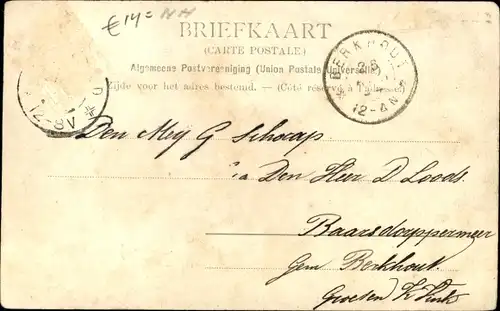 € 14=
BRIEFKAART
(CARTE POSTALE)
Algemeene Postvereeniging (Union Postale Universelle)
Zijde voor het adres bestemd. — (Côté réservé à l'adresse)
BERKHOUT
12-8V
Den Mej G Schaap
Den Heer D Loods
Baarsdorppermeer
Gem Berkhout
Groeten